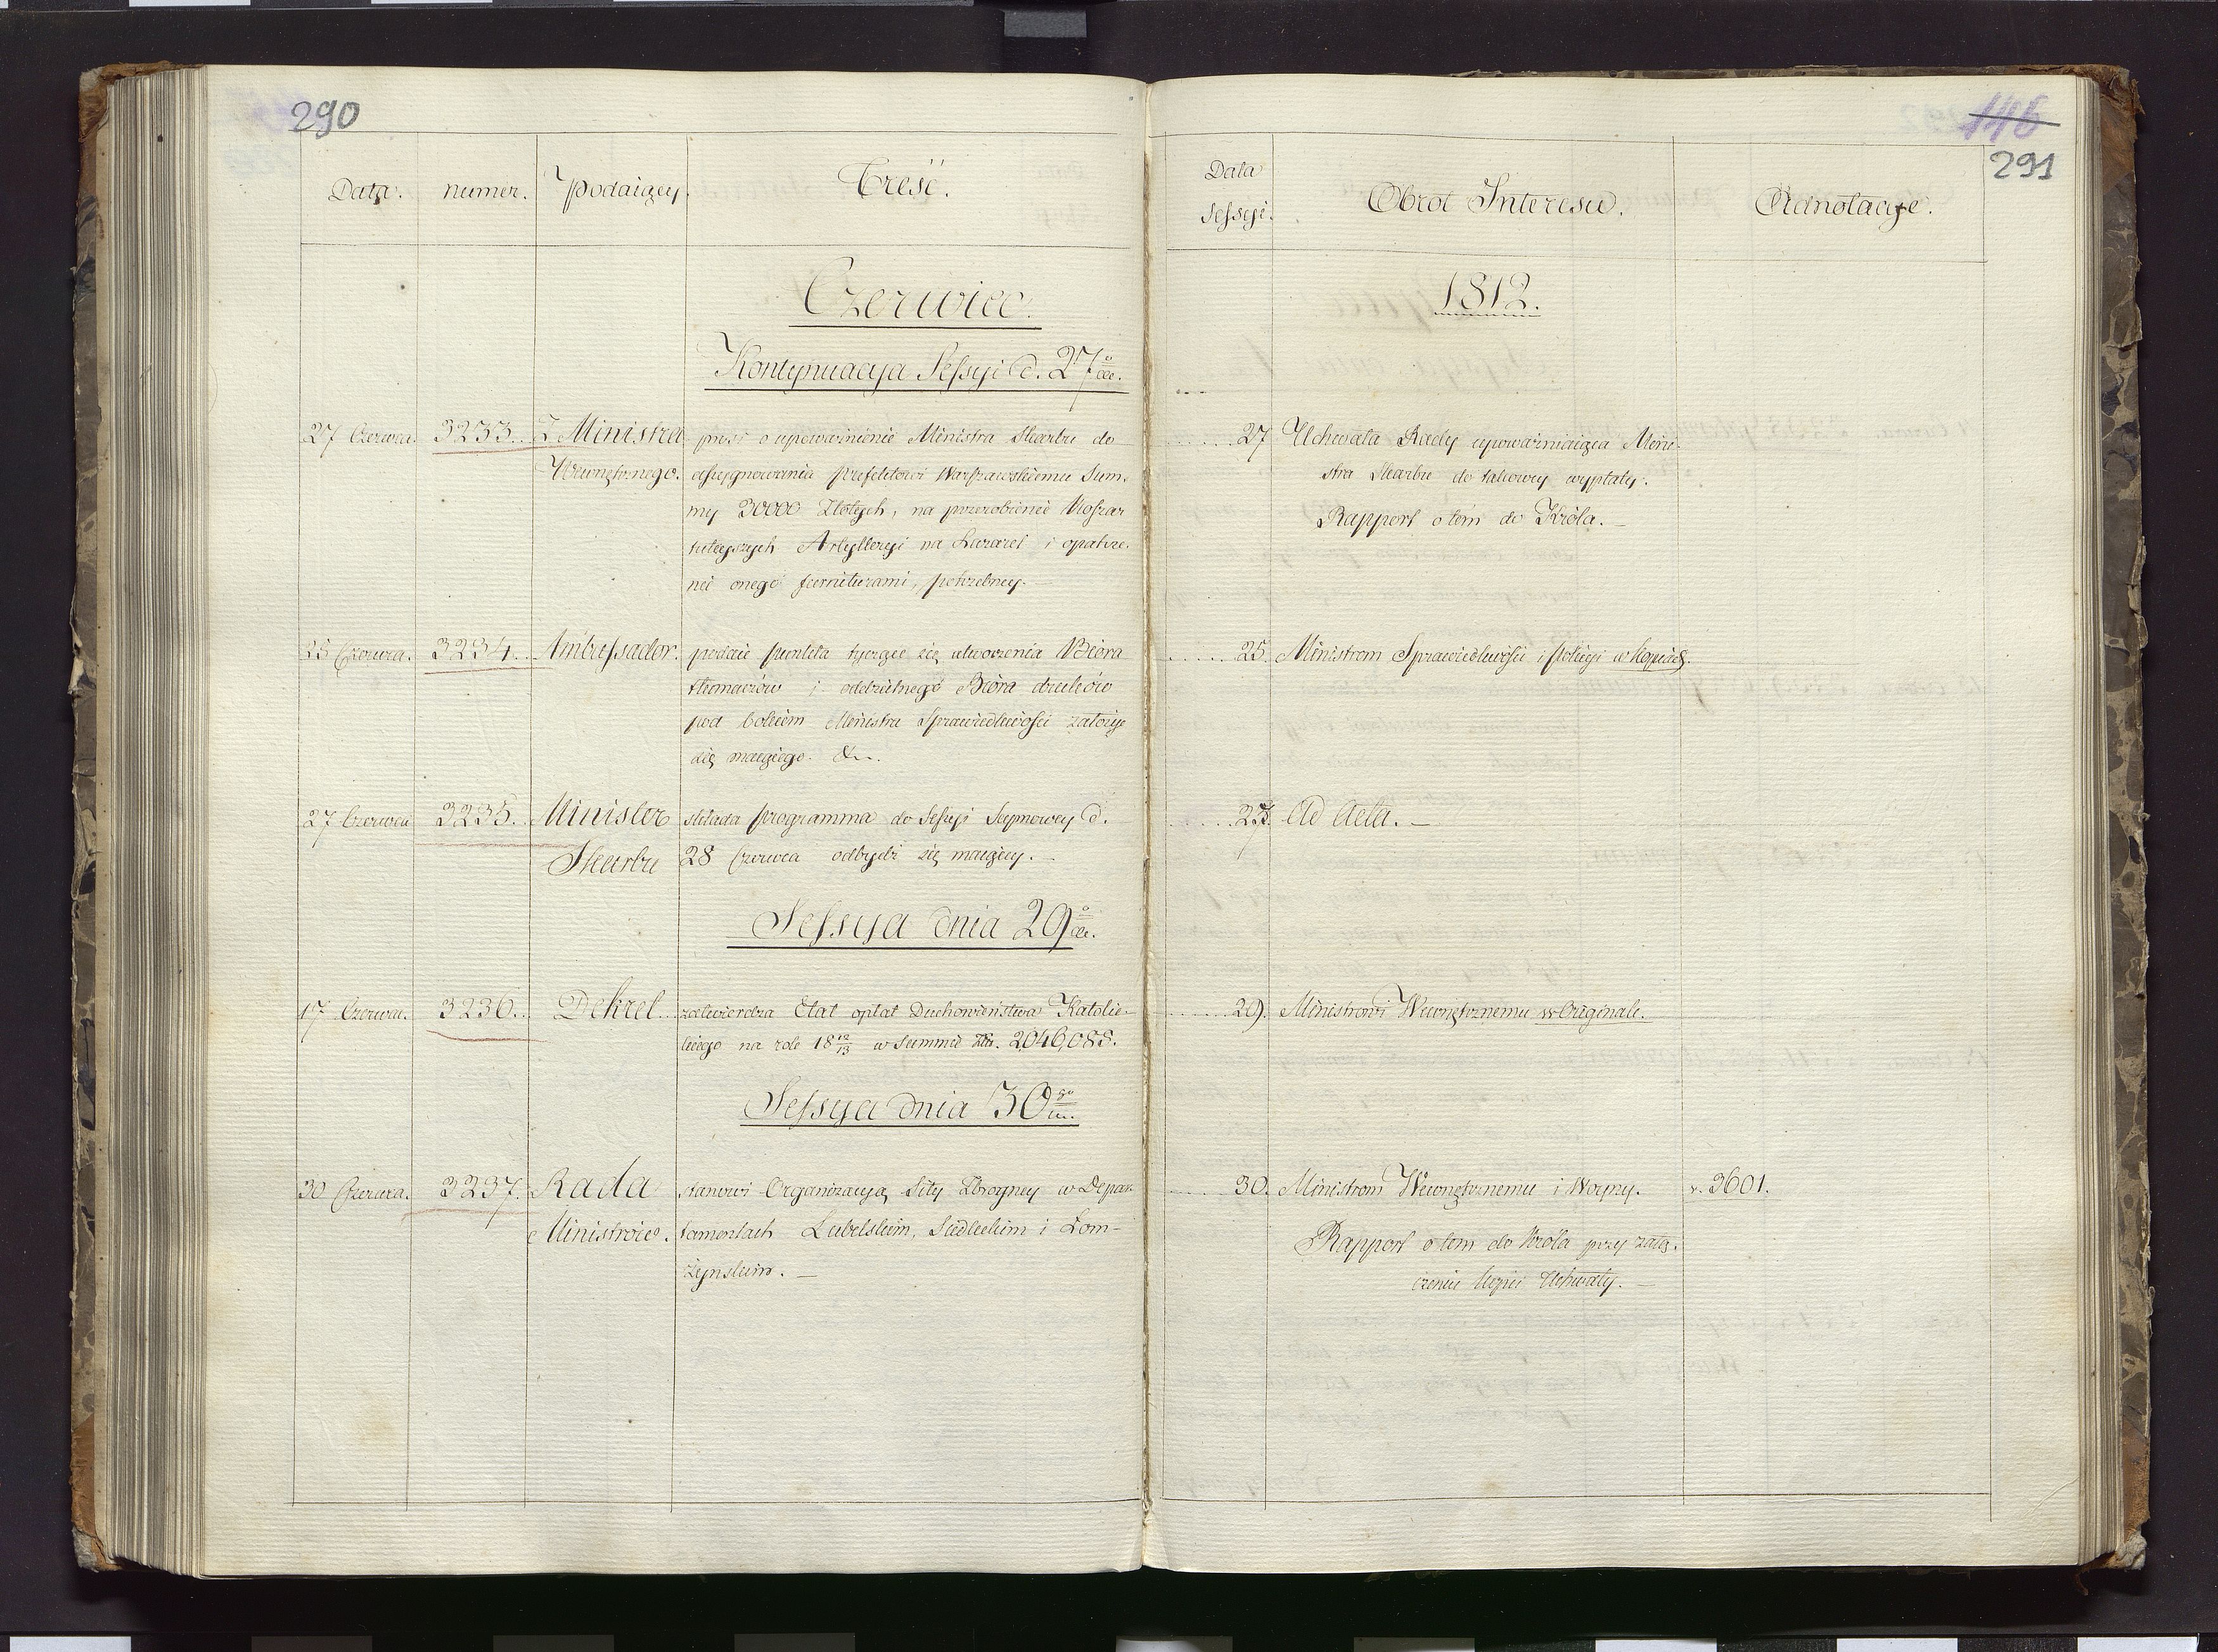 290
Data. numer. Podaiący. Treść.
Czerwiec.
Kontynuacya Sessyi d. 27º ce.
27 Czerwca. 3233. Z Ministra prosi o upoważnienie Ministra Skarbu do
Wewnętrznego. assygnowania Prefektowi Warszawskiemu Sum-
my 30000 Złotych, na przerobienie Koszar
tuteyszych Artylleryi na Lazaret i opatrze-
nie onego furniturami, potrzebney. —
25 Czerwca. 3234. Ambassador. podaie punkta tyczące się utworzenia Biora
tłomaczów i oddzielnego Biora druków
pod bokiem Ministra Sprawiedliwości założyć
się maiącego. &...
27 Czerwca 3235. Minister składa programma do Sessyi Seymowey d.
Skarbu 28 Czerwca odbydź się maiącey. —
Sessya dnia 29º ce.
17 Czerwca. 3236. Dekret zatwierdza Etat opłat Duchowieństwa Katolic-
kiego na rok 18 12/13 w summie Złł. 2,046,088.
Sessya dnia 30go
30 Czerwca. 3237. Rada stanowi Organizacyą Siły Zbroyney w Depar-
Ministrów. tamentach Lubelskim, Siedleckim i Łom-
żyńskim. —
146
291
Data
Sessyi. Obrot Interesu. Adnotacye.
1812.
27 Uchwała Rady upoważniaiąca Mini-
stra Skarbu do takowey wypłaty.
Rapport o tém do Króla. —
25. Ministrom Sprawiedliwości i Policyi w kopiiach.
27. Ad Acta. —
29. Ministrowi Wewnętrznemu w Originale.
30. Ministrom Wewnętrznemu i Woyny. v. 3601.
Rapport o tem do Króla przy załą-
czeniu kopii Uchwały. —